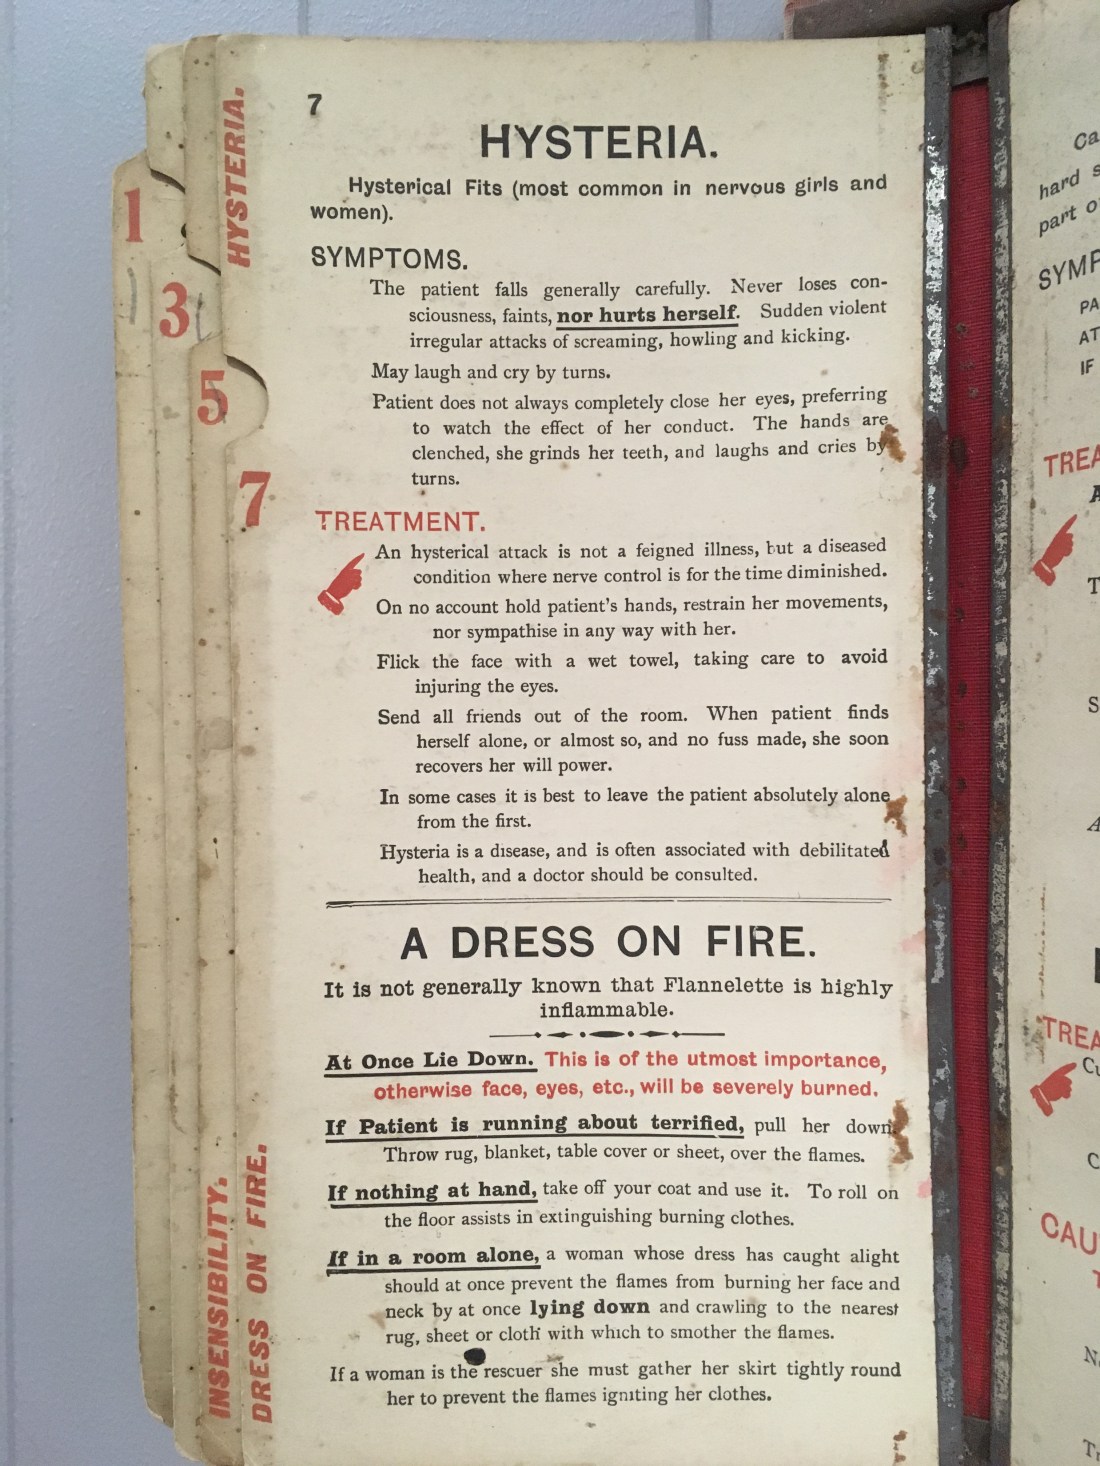 7
HYSTERIA.
Hysterical Fits (most common in nervous girls and
women).
SYMPTOMS.
The patient falls generally carefully. Never loses con-
sciousness, faints, nor hurts herself. Sudden violent
irregular attacks of screaming, howling and kicking.
May laugh and cry by turns.
Patient does not always completely close her eyes, preferring
to watch the effect of her conduct. The hands are
clenched, she grinds her teeth, and laughs and cries by
turns.
TREATMENT.
An hysterical attack is not a feigned illness, but a diseased
condition where nerve control is for the time diminished.
On no account hold patient's hands, restrain her movements,
nor sympathise in any way with her.
Flick the face with a wet towel, taking care to avoid
injuring the eyes.
Send all friends out of the room. When patient finds
herself alone, or almost so, and no fuss made, she soon
recovers her will power.
In some cases it is best to leave the patient absolutely alone
from the first.
Hysteria is a disease, and is often associated with debilitated
health, and a doctor should be consulted.
A DRESS ON FIRE.
It is not generally known that Flannelette is highly
inflammable.
At Once Lie Down. This is of the utmost importance,
otherwise face, eyes, etc., will be severely burned.
If Patient is running about terrified, pull her down
Throw rug, blanket, table cover or sheet, over the flames.
If nothing at hand, take off your coat and use it. To roll on
the floor assists in extinguishing burning clothes.
If in a room alone, a woman whose dress has caught alight
should at once prevent the flames from burning her face and
neck by at once lying down and crawling to the nearest
rug, sheet or cloth with which to smother the flames.
If a woman is the rescuer she must gather her skirt tightly round
her to prevent the flames igniting her clothes.
HYSTERIA.
1
3
5
7
INSENSIBILITY.
DRESS ON FIRE.
Ca
hard s
part o
SYMP
PA
AT
IF
TREA
A
T
S
A
TREA
Cu
C
CAU
T
N
Tr